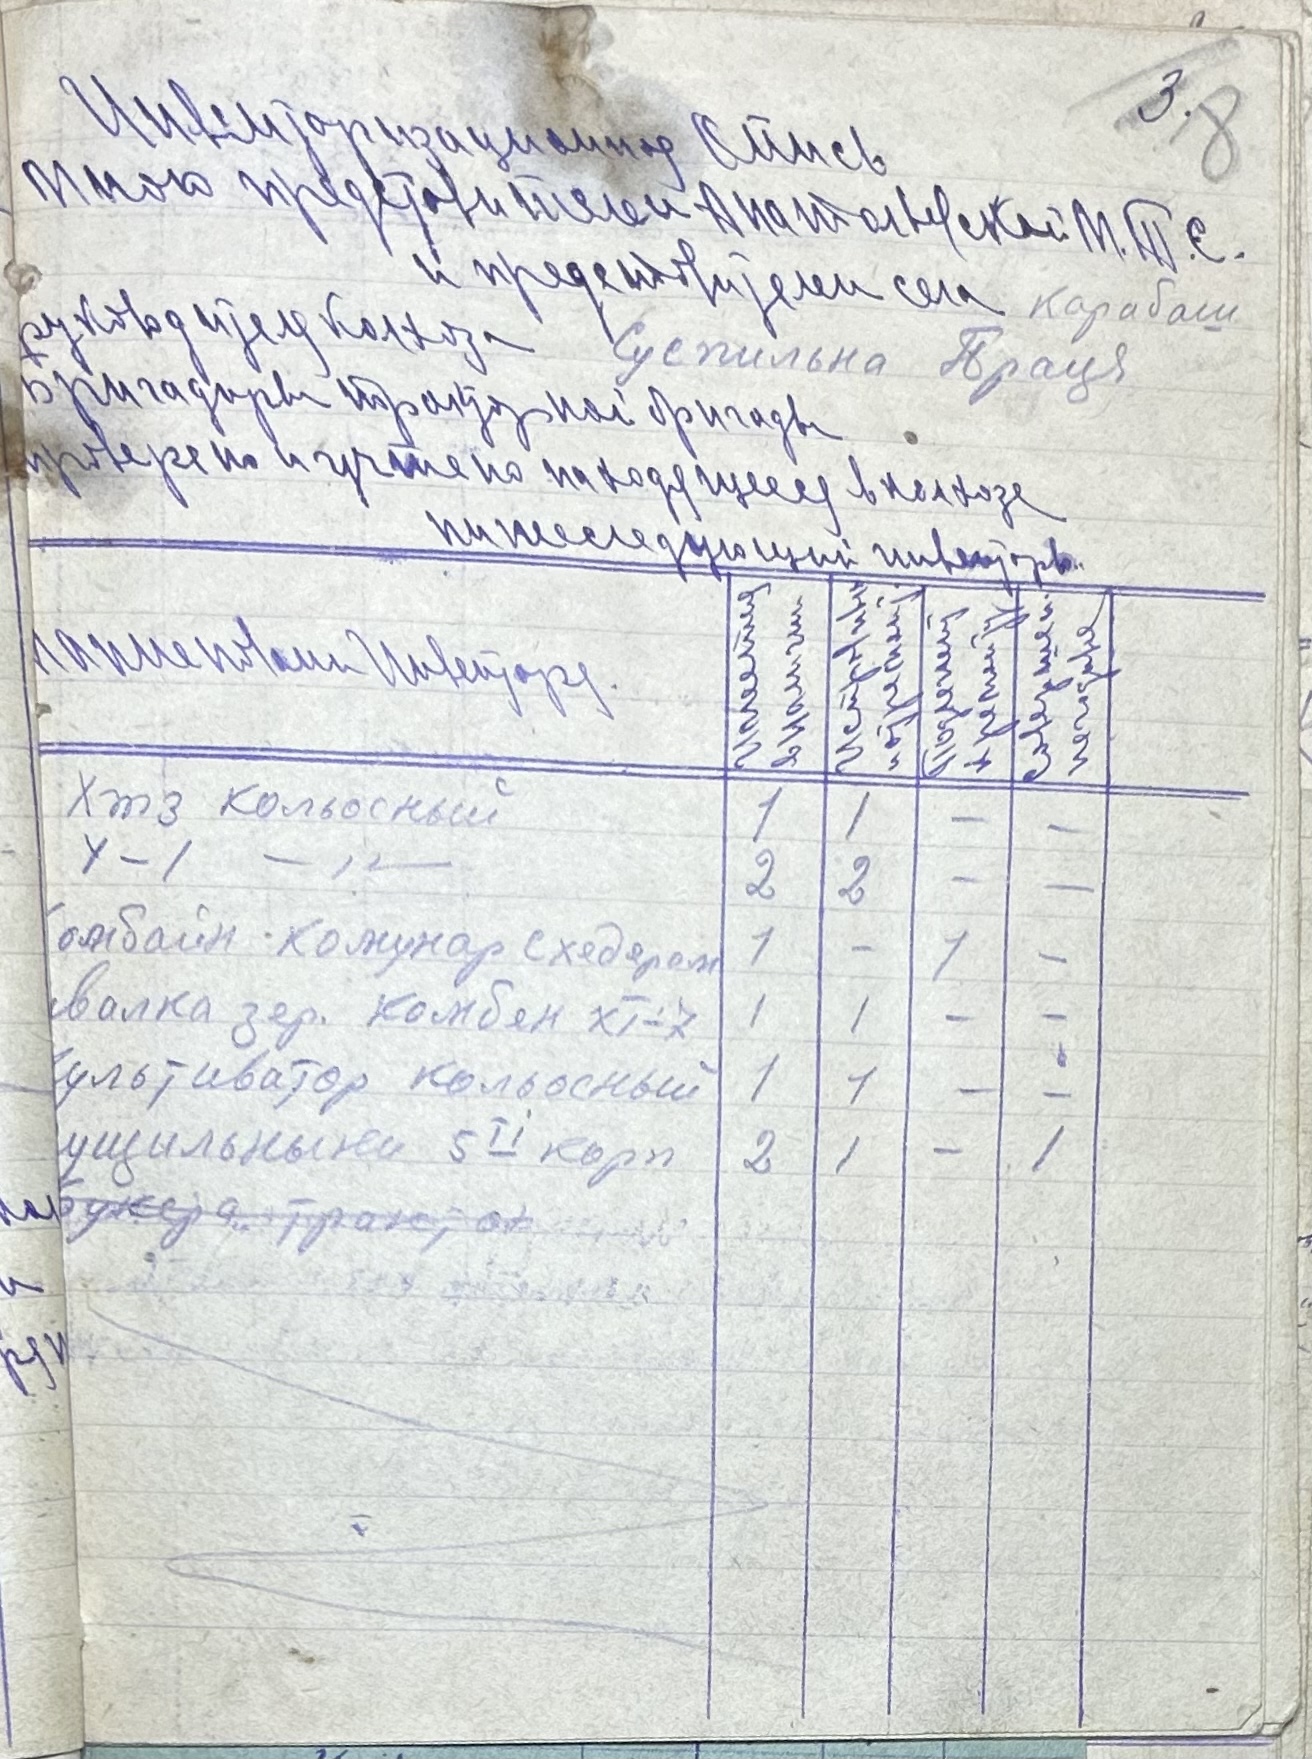 3.
8
Инвентаризационная Опись
Мною представителем Анатольевской М.Т.С.
и представителем села Карабаш
руководителя колхоза Суспильна Праця
Бригадиры тракторной бригады
проверено и учтено находящееся в колхозе
нижеследующий инвентарь.
наименовании Инвентаря. Имеется в наличии Исправный Подлежит к ремонту Совершен. негодная
Хтз кольосный 1 1 — —
У-1 —„— 2 2 — —
Комбайн Комунар с хедером 1 - 1 -
валка зер. Комбен ХТ-7 1 1 - -
Культиватор кольосный 1 1 — —
ущильныки 5 ТІ корп 2 1 - 1